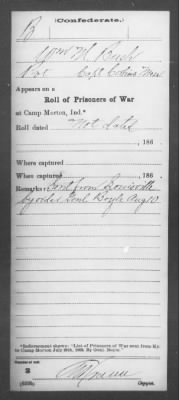 (Confederate.)
B
Wm H Bush
Pvt Capt Men
Appears on a
Roll of Prisoners of War
at Camp Morton, Ind.*
Roll dated Not dated
, 186
Where captured
When captured , 186
Remarks: Sent from Louisville
by order Genl Boyle Aug 10
*Endorsement shows: "List of Prisoners of War sent from Ky.
to Camp Morton July 29th, 1862. By Genl. Boyle."
Number of roll:
3
Copyist.